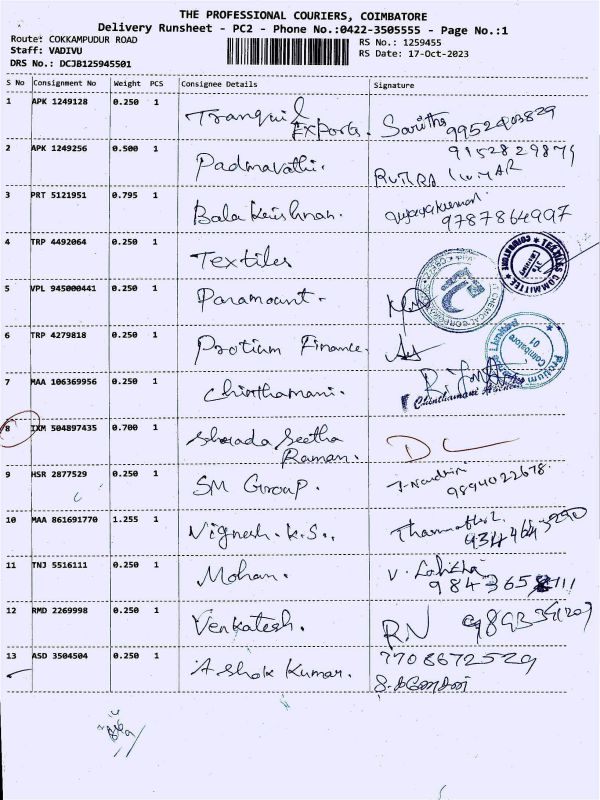 THE PROFESSIONAL COURIERS, COIMBATORE
Delivery Runsheet - PC2 - Phone No.:0422-3505555 - Page No.:1
Route: COKKAMPUDUR ROAD RS No.: 1259455
Staff: VADIVU RS Date: 17-Oct-2023
DRS No.: DCJB125945501
S No Consignment No Weight PCS Consignee Details Signature
1 APK 1249128 0.250 1 Tranquil Exports. Saritha 9952403829
2 APK 1249256 0.500 1 Padmavathi. 9152829879
3 PRT 5121951 0.795 1 Bala Krishnan. 9787864997
4 TRP 4492064 0.250 1 Textiles TEXTILES COMMITTEE
5 VPL 945000441 0.250 1 Paramount.
6 TRP 4279818 0.250 1 Protium Finance. Coimbatore 01
7 MAA 106369956 0.250 1 Chinthamani. Chinthamani
8 IXM 504897435 0.700 1 Sharada Seetha Raman. DC
9 HSR 2877529 0.250 1 SM Group. 9894022678.
10 MAA 861691770 1.255 1 Vignesh.K.S..
11 TNJ 5516111 0.250 1 Mohan. V.
12 RMD 2269998 0.250 1 Venkatesh. RN
13 ASD 3504504 0.250 1 Ashok Kumar. 7708672529